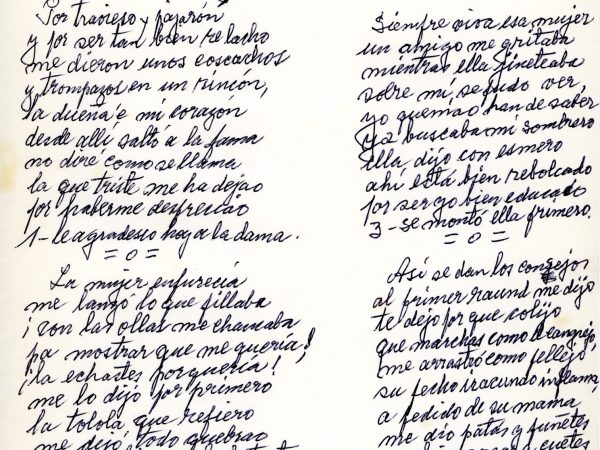 Por travieso y pajarón
y por ser tan bien re lacho
me dieron unos coscachos
y trompazos en un rincón,
la dueña e mi corazón
desde allí saltó a la fama
no diré como se llama
la que triste me ha dejao
por haberme despreciao
1- le agradesco hoy a la dama.
= o =
La mujer enfurecía
me lanzó lo que pillaba
¡con las ollas me chancaba
pa mostrar que me quería!
¡la echastes porquería!
me lo dijo por primero
la tolola que refiero
me dejó todo quebrao
Siempre viva esa mujer
un amigo me gritaba
mientras ella gineteaba
sobre mi, se pudo ver,
yo quemao han de saber
ya buscaba mi sombrero
ella dijo con esmero
ahí está bien rebolcado
por ser go bien educado
3- se montó ella primero.
= o =
Así se dan los consejos
al primer raund me dijo
te dejo por que colijo
que marchas como el cangrejo,
me arrastró como pellejo,
su pecho iracundo inflama,
a pedido de su mama
me dio patás y puñetes